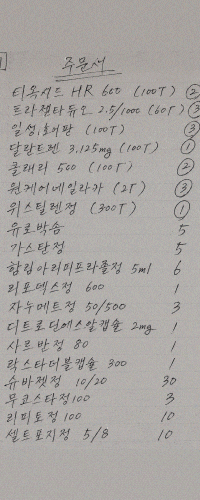 주문서
티옥시드 HR 600 (100T) 2
트라젠타듀오 2.5/1000 (60T) 3
일성,독시판 (100T) 3
달라트렌 3.125mg (100T) 1
클래리 500 (100T) 2
원케어네일라카 (2T) 3
위스틸렌정 (300T) 1
유로박솜 5
가스탄정 5
한림아리피프라졸정 5ml 6
리포덱스정 600 1
자누메트정 50/500 3
디트로딘에스알캡슐 2mg 1
사르반정 80 1
락스타더블캡슐 300 1
슈바젯정 10/20 30
무코스타정100 3
리피토정100 10
셀트포지정 5/8 10